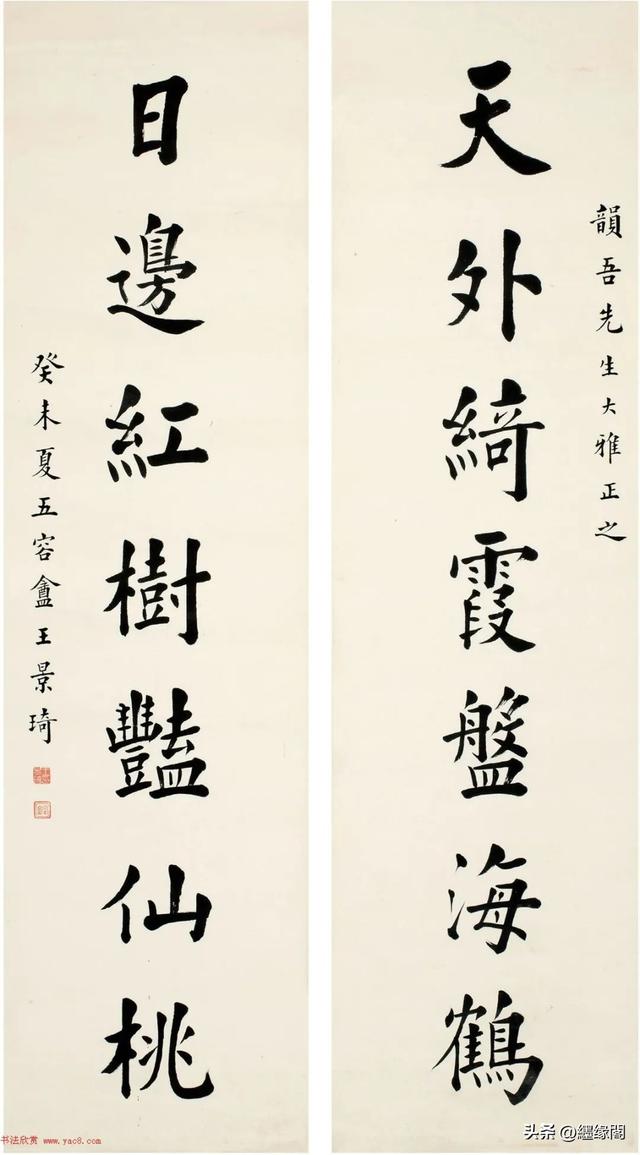 韻吾先生大雅正之
天外綺霞盤海鶴
日邊紅樹豔仙桃
癸未夏五容盦王景琦
书法欣赏 www.yac8.com
头条 @纒缘閣